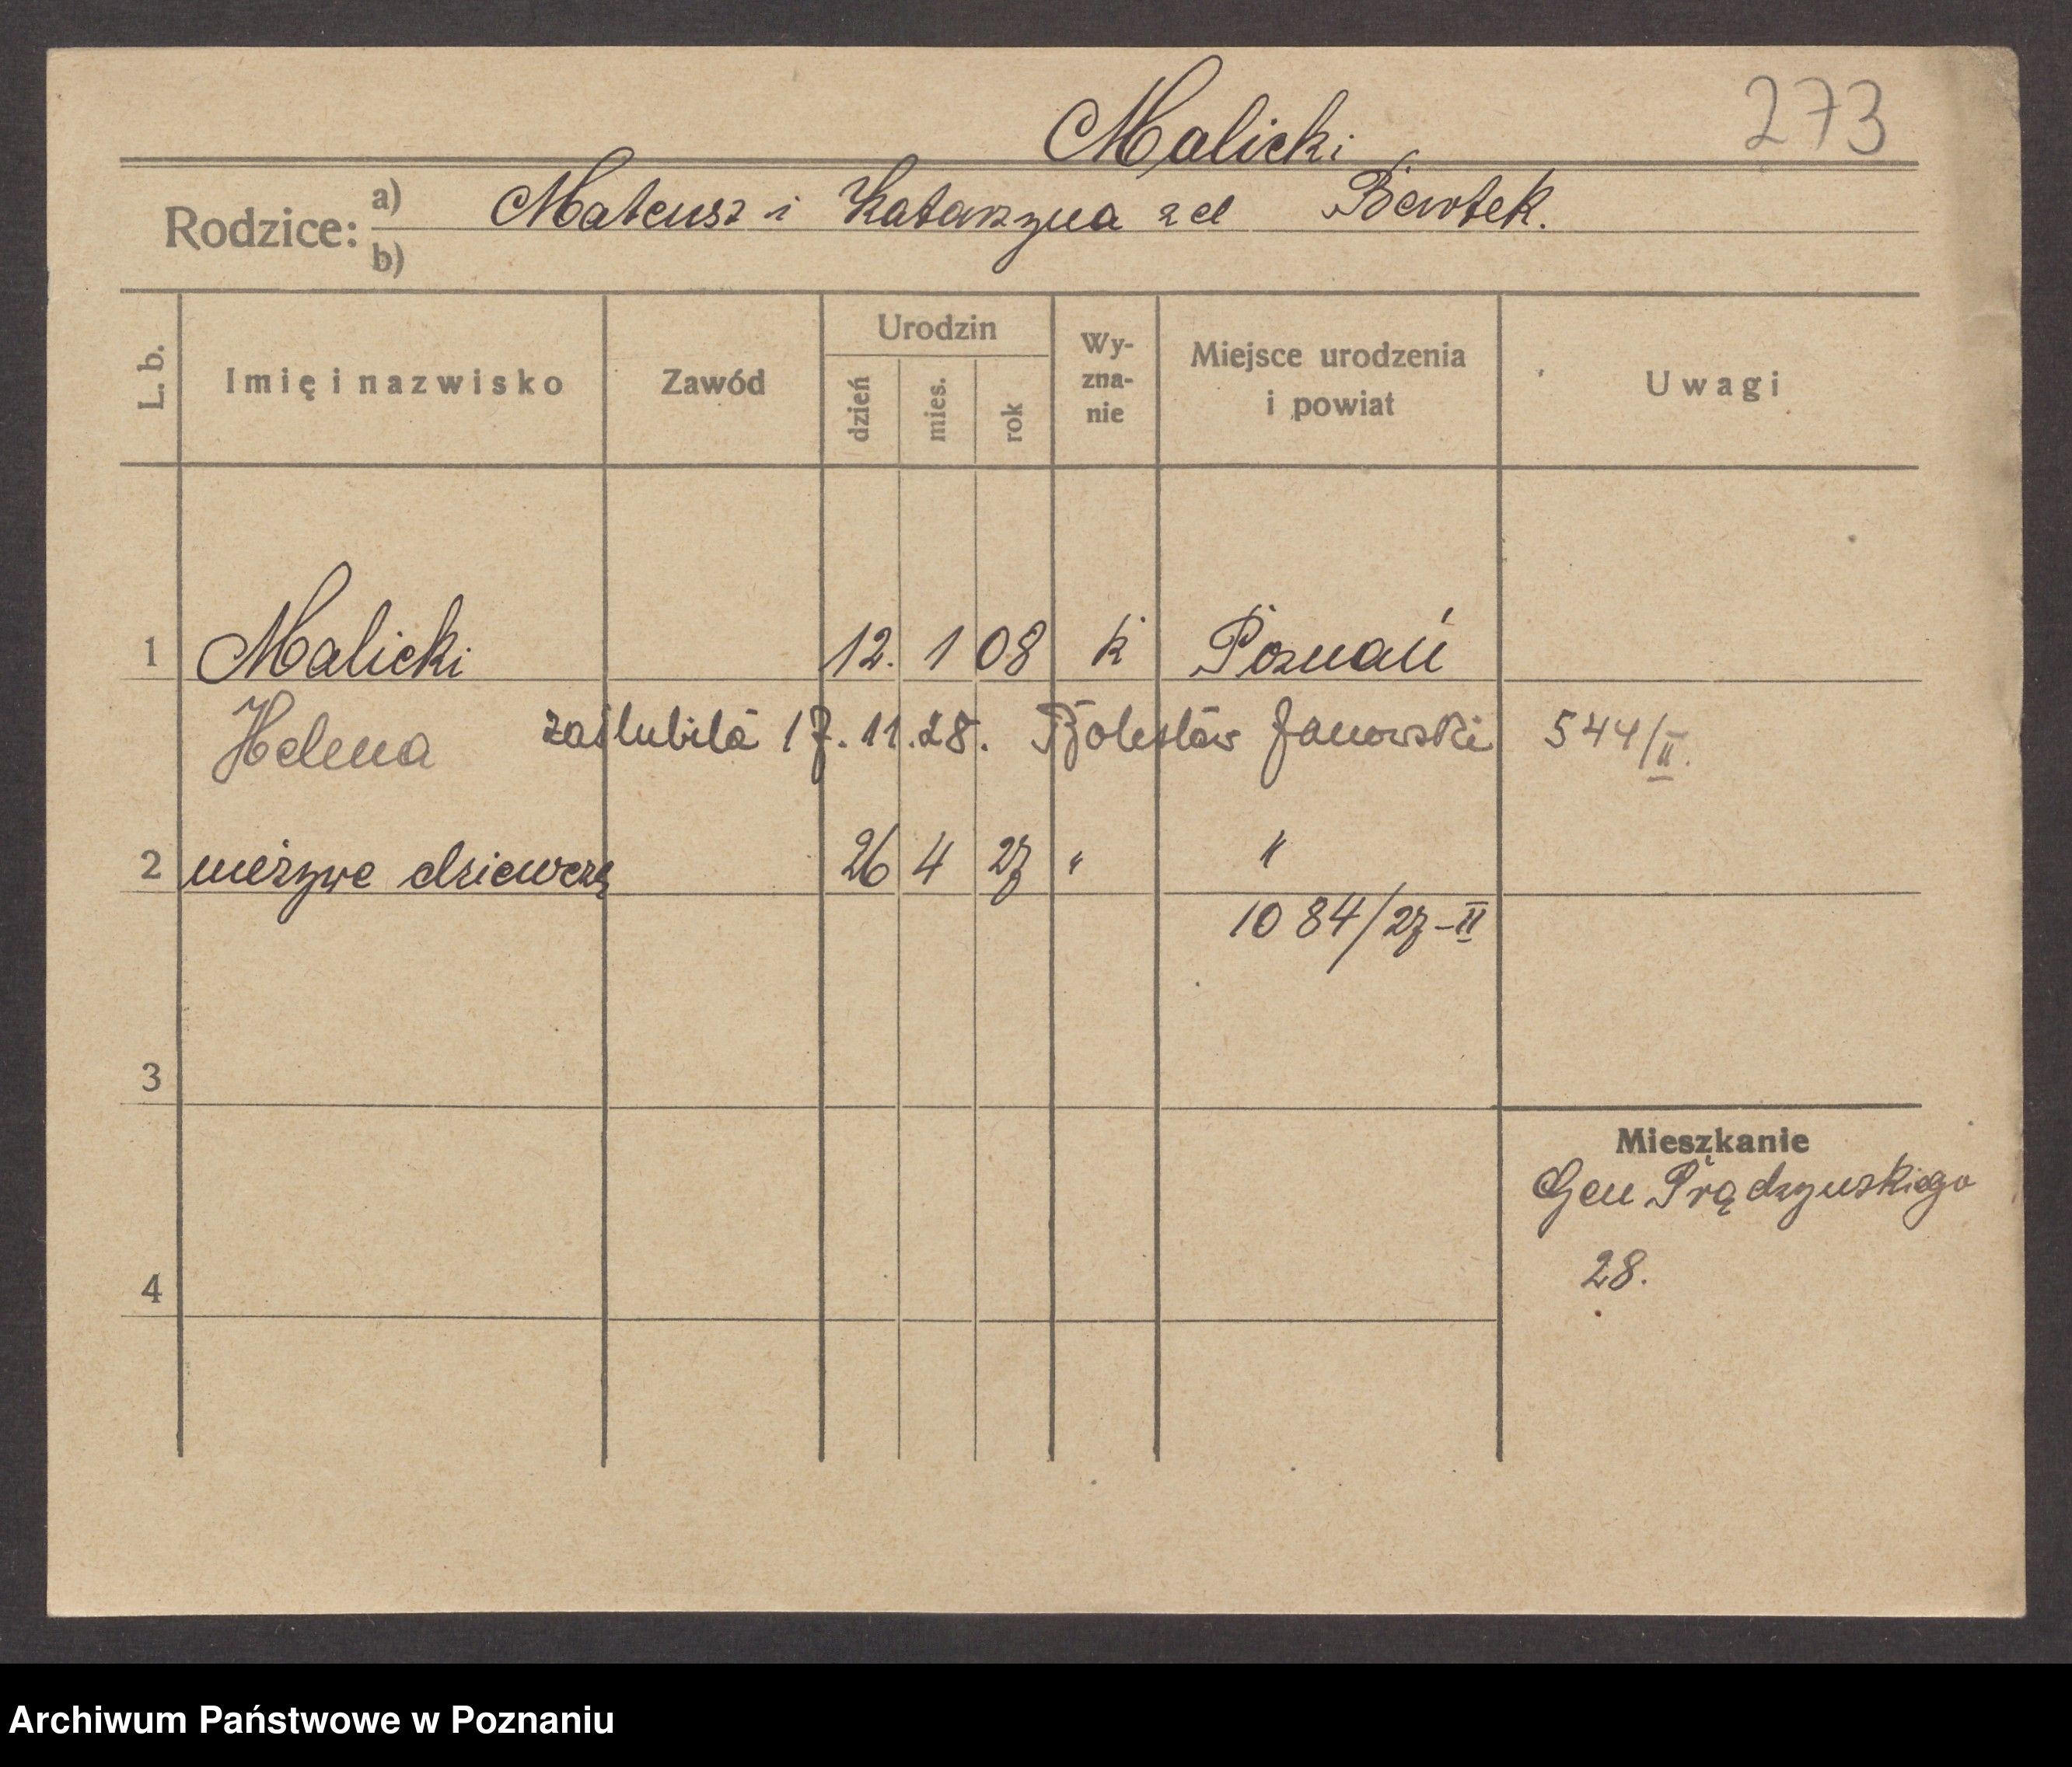 Malicki
273
Rodzice: a) Mateusz i Katarzyna z d Bartek.
b)
L. b.
Imię i nazwisko
Zawód
Urodzin
dzień
mies.
rok
Wy-
zna-
nie
Miejsce urodzenia
i powiat
Uwagi
1 Malicki 12. 1 08 k Poznań
Helena zaślubiła 17.11.28. Bolesław Janowski 544/II.
2 nieżywe dziewczę 26 4 27 " "
1084/27-II
3
Mieszkanie
Gen Prądzynskiego
28.
4
Archiwum Państwowe w Poznaniu